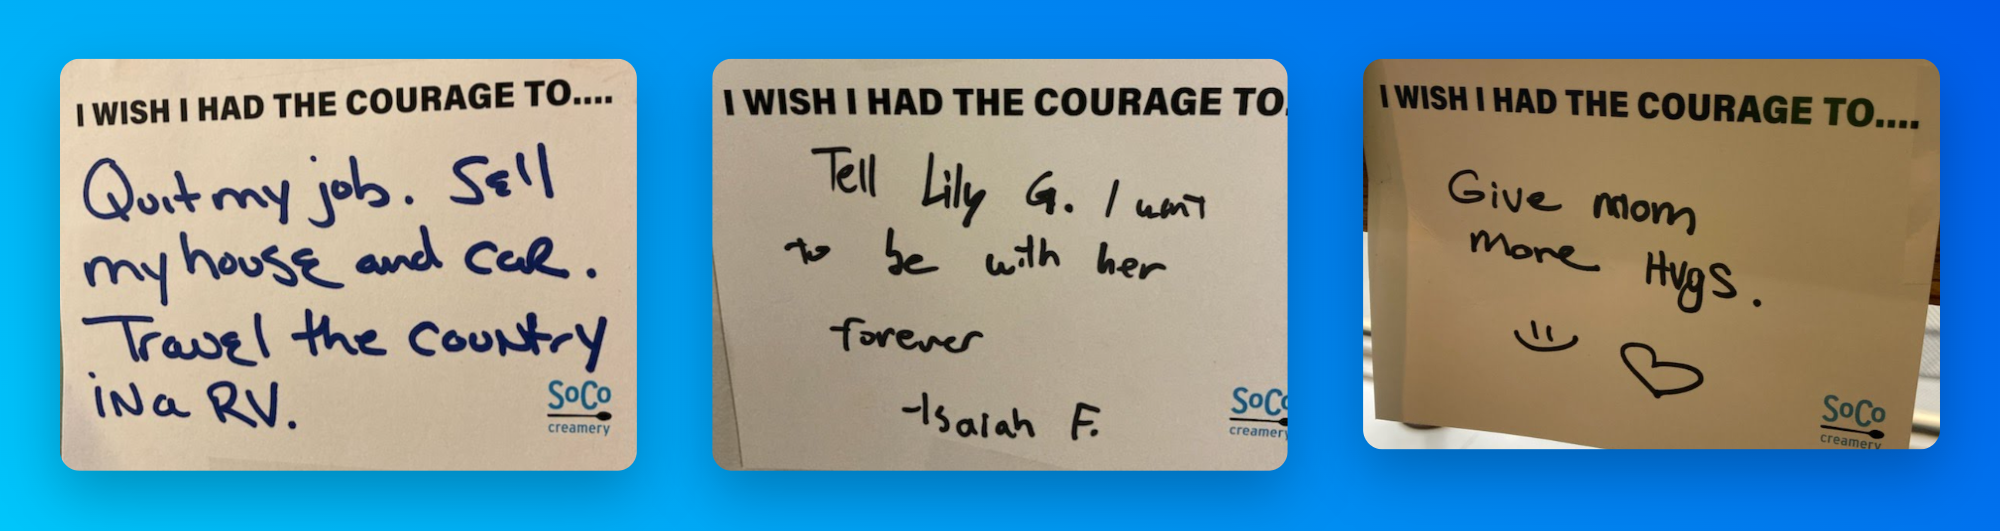 I WISH I HAD THE COURAGE TO....
Quit my job. Sell
my house and car.
Travel the country
in a RV.
SoCo
creamery
I WISH I HAD THE COURAGE TO.
Tell Lily G. I want
to be with her
forever
-Isaiah F.
SoCo
creamery
I WISH I HAD THE COURAGE TO....
Give mom
more Hugs.
SoCo
creamery